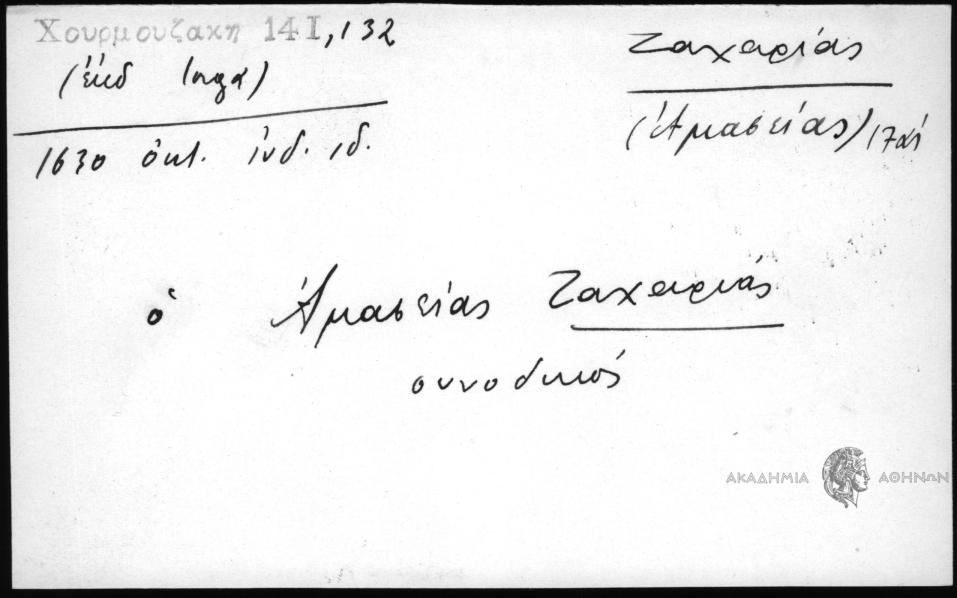 Χουρμουζακη 14Ι, 132
Ζαχαρίας
(ἐκδ
(Ἀμασείας) 17
1630 ὀκτ. ἰνδ. ιδ.
ὁ Ἀμασείας Ζαχαρίας
συνοδικός
ΑΚΑΔΗΜΙΑ ΑΘΗΝΩΝ